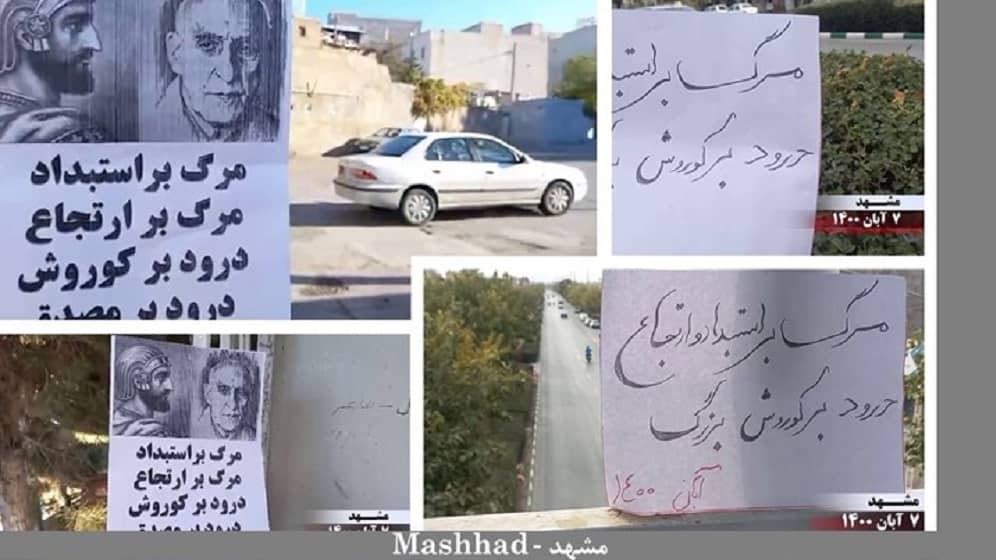 مرگ بر استبداد
مرگ بر ارتجاع
درود بر کوروش
درود بر مصدق
مرگ بر استبد
درود بر کوروش
مشهد
۷ آبان ۱۴۰۰
مرگ بر استبداد
مرگ بر ارتجاع
درود بر کوروش
درود بر مصدق
مشهد
مرگ بر استبداد و ارتجاع
درود بر کوروش بزرگ
آبان ۱۴۰۰
مشهد
۷ آبان ۱۴۰۰
Mashhad - مشهد